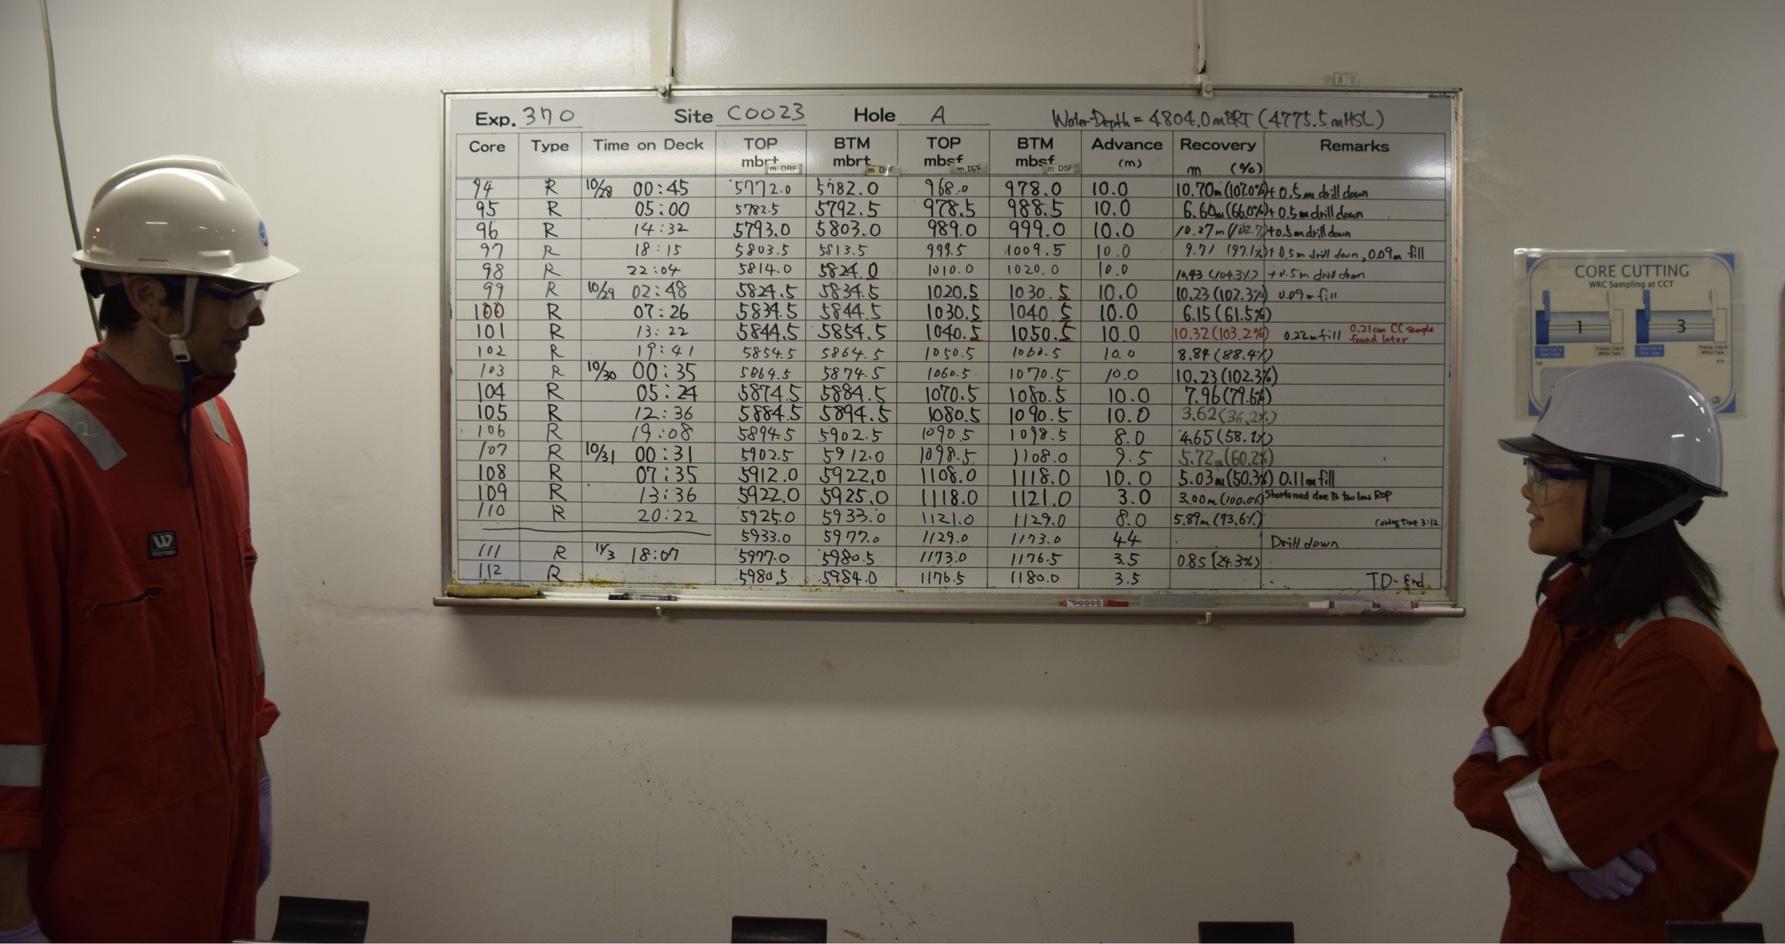 Exp. 370 Site C0023 Hole A Water Depth = 4804.0 mBRT (4775.5 mMSL)
Core Type Time on Deck TOP mbrt BTM mbrt TOP mbsf BTM mbsf Advance (m) Recovery m (%) Remarks
m DRF m DSF m DSF
94 R 10/28 00:45 5772.0 5782.0 968.0 978.0 10.0 10.70m (107.0%) + 0.5m drill down
95 R 05:00 5782.5 5792.5 978.5 988.5 10.0 6.60m (66.0%) + 0.5m drill down
96 R 14:32 5793.0 5803.0 989.0 999.0 10.0 10.27m (102.7) +0.5m drill down
97 R 18:15 5803.5 5813.5 999.5 1009.5 10.0 9.71 (97.1%) + 0.5m drill down, 0.09m fill
98 R 22:04 5814.0 5824.0 1010.0 1020.0 10.0 10.43 (104.3%) +0.5m drill down
99 R 10/29 02:48 5824.5 5834.5 1020.5 1030.5 10.0 10.23 (102.3%) 0.09m fill
100 R 07:26 5834.5 5844.5 1030.5 1040.5 10.0 6.15 (61.5%)
101 R 13:22 5844.5 5854.5 1040.5 1050.5 10.0 10.32 (103.2%) 0.22m fill 0.21cm CC sample found later
102 R 19:41 5854.5 5864.5 1050.5 1060.5 10.0 8.84 (88.4%)
103 R 10/30 00:35 5864.5 5874.5 1060.5 1070.5 10.0 10.23 (102.3%)
104 R 05:24 5874.5 5884.5 1070.5 1080.5 10.0 7.96 (79.6%)
105 R 12:36 5884.5 5894.5 1080.5 1090.5 10.0 3.62 (36.2%)
106 R 19:08 5894.5 5902.5 1090.5 1098.5 8.0 4.65 (58.1%)
107 R 10/31 00:31 5902.5 5912.0 1098.5 1108.0 9.5 5.72m (60.2%)
108 R 07:35 5912.0 5922.0 1108.0 1118.0 10.0 5.03m (50.3%) 0.11m fill
109 R 13:36 5922.0 5925.0 1118.0 1121.0 3.0 3.00m (100.0%) Shortened due to too low ROP
110 R 20:22 5925.0 5933.0 1121.0 1129.0 8.0 5.89m (73.6%) (coring time 3:12
5933.0 5977.0 1129.0 1173.0 44 Drill down
111 R 11/3 18:07 5977.0 5980.5 1173.0 1176.5 3.5 0.85 (24.3%)
112 R 5980.5 5984.0 1176.5 1180.0 3.5 TD-End
CORE CUTTING
WRC Sampling at CCT
1 3